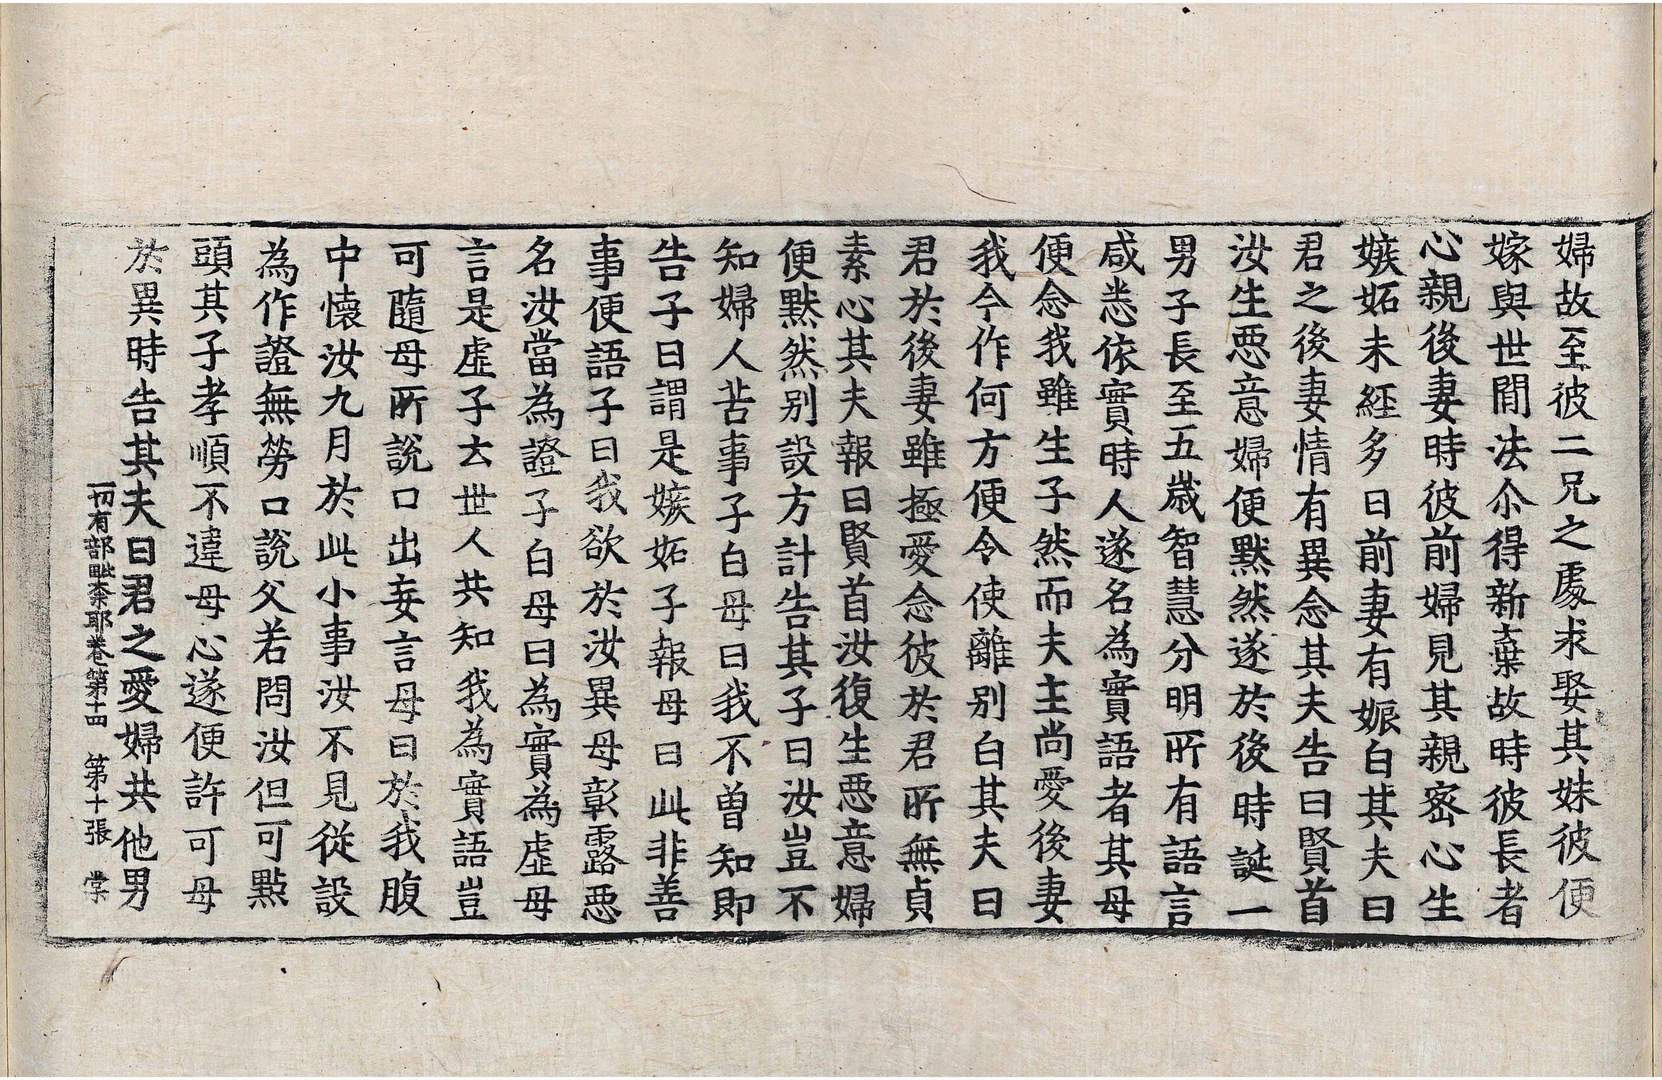 婦故至彼二兄之處求娶其妹彼便
嫁與世間法尒得新棄故時彼長者
心親後妻時彼前婦見其親密心生
嫉妬未經多日前妻有娠白其夫曰
君之後妻情有異念其夫告曰賢首
汝生惡意婦便黙然遂於後時誕一
男子長至五歲智慧分明所有語言
咸悉依實時人遂名為實語者其母
便念我雖生子然而夫主尚愛後妻
我今作何方便令使離别白其夫曰
君於後妻雖極愛念彼於君所無貞
素心其夫報曰賢首汝復生惡意婦
便黙然别設方計告其子曰汝豈不
知婦人苦事子白母曰我不曾知即
告子曰謂是嫉妬子報母曰此非善
事便語子曰我欲於汝異母彰露惡
名汝當為證子白母曰為實為虛母
言是虛子去世人共知我為實語豈
可隨母所說口出妄言母曰於我腹
中懷汝九月於此小事汝不見從設
為作證無勞口說父若問汝但可點
頭其子孝順不違母心遂便許可母
於異時告其夫曰君之愛婦共他男
一切有部毗奈耶卷第十四 第十張 棠